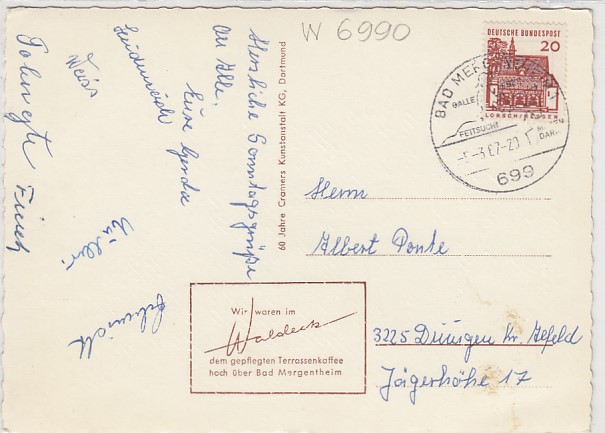 W 6990
Herzliche Sonntagsgrüße
an Alle.
Eure Gerda
Weiss
60 Jahre Cramers Kunstanstalt KG, Dortmund
DEUTSCHE BUNDESPOST
20
LORSCH/HESSEN
BAD MERGENTHEIM
GALLE
FETTSUCHT
DARM
-5-3.67-20
699
Herrn
Albert Ponte
3225 Duingen Kr. Alfeld
Jägerhöhe 17
Wir waren im
Waldeck
dem gepflegten Terrassenkaffee
hoch über Bad Mergentheim